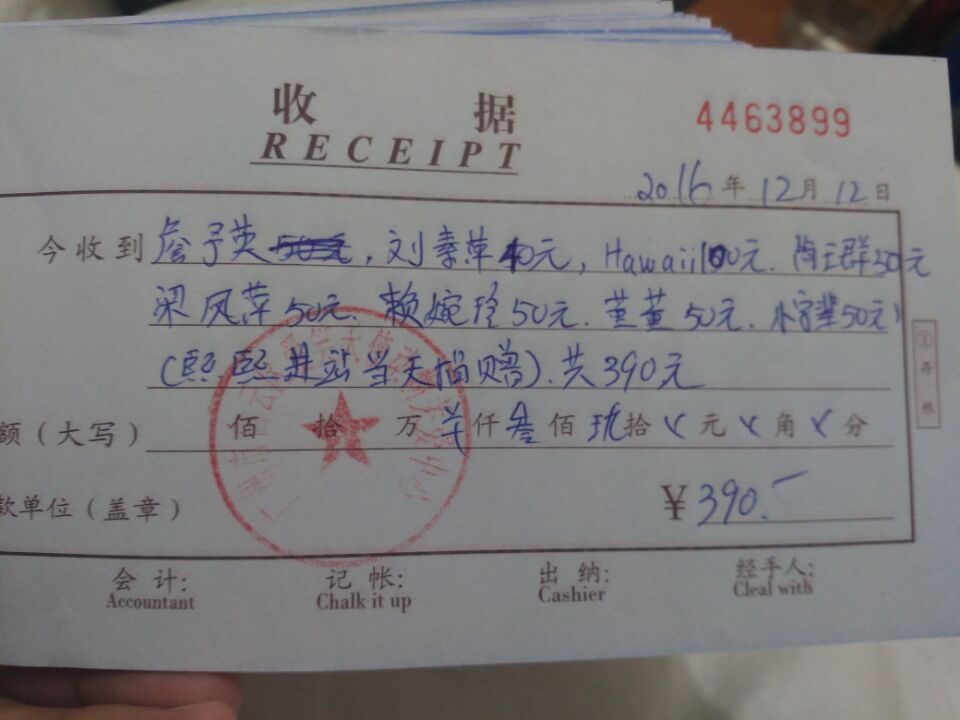 收 据
RECEIPT
4463899
2016年12月12日
今收到 詹予英 50元, 刘素萍40元, Hawaii100元. 陶三群50元
梁凤萍50元. 赖婉玲50元. 董董50元. 50元
(熙熙进站当天捐赠). 共390元
额(大写) 佰 拾 万 仟叁佰玖拾 元 角 分
款单位(盖章) ¥390.-
①存根
会 计: 记 帐: 出 纳: 经手人:
Accountant Chalk it up Cashier Cleal with